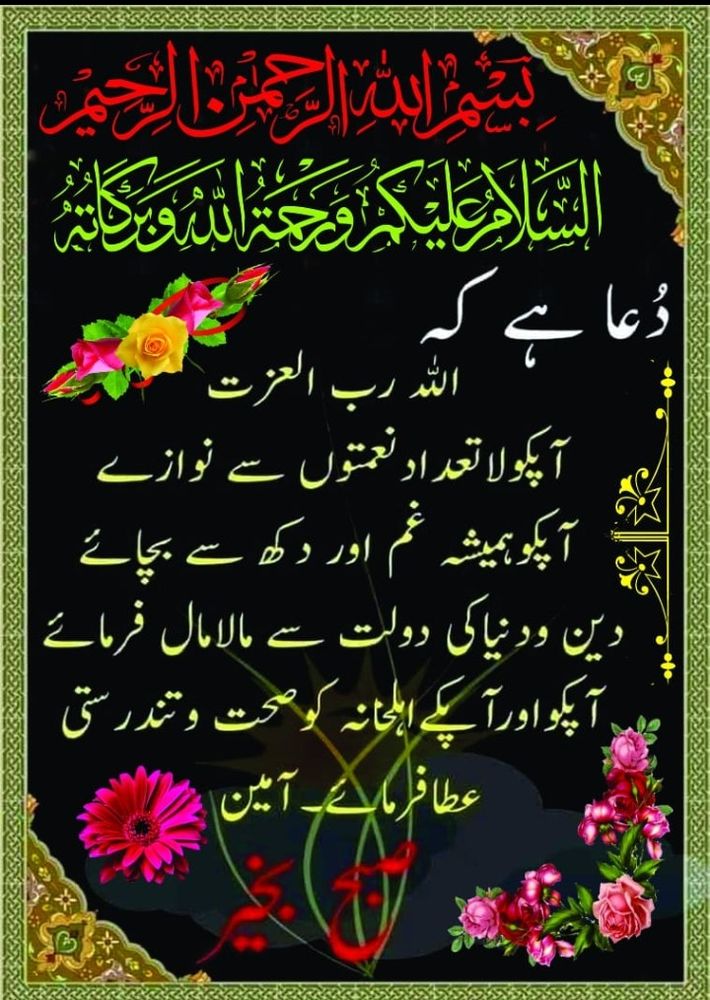 بِسْمِ اللهِ الرَّحْمٰنِ الرَّحِيْمِ
السَّلَامُ عَلَيْكُمْ وَرَحْمَةُ اللهِ وَبَرَكَاتُهُ
دُعا ہے کہ
اللہ رب العزت
آپکو لا تعداد نعمتوں سے نوازے
آپکو ہمیشہ غم اور دکھ سے بچائے
دین و دنیا کی دولت سے مالا مال فرمائے
آپکو اور آپکے اہلخانہ کو صحت و تندرستی
عطا فرمائے۔ آمین
صبح بخیر